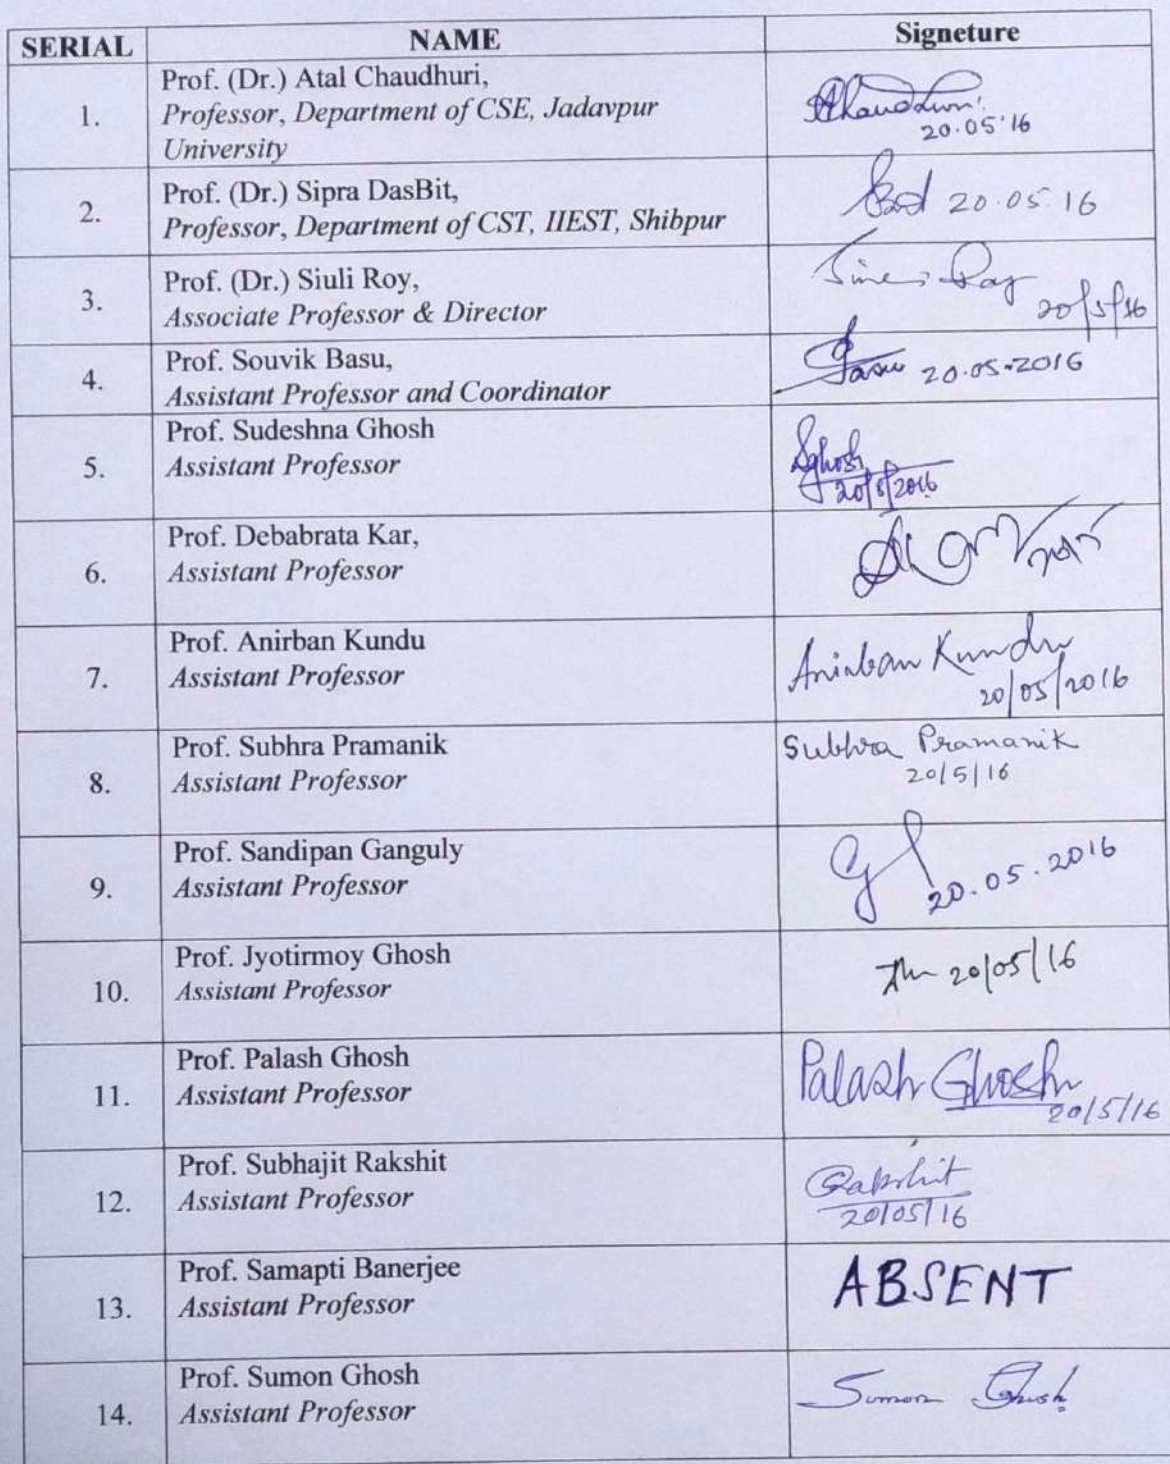 SERIAL NAME Signeture
1. Prof. (Dr.) Atal Chaudhuri,
Professor, Department of CSE, Jadavpur
University
Chaudhuri
20.05.16
2. Prof. (Dr.) Sipra DasBit,
Professor, Department of CST, IIEST, Shibpur
20.05.16
3. Prof. (Dr.) Siuli Roy,
Associate Professor & Director
Roy
20/5/16
4. Prof. Souvik Basu,
Assistant Professor and Coordinator
Basu 20.05.2016
5. Prof. Sudeshna Ghosh
Assistant Professor
SGhosh
20/5/2016
6. Prof. Debabrata Kar,
Assistant Professor
7. Prof. Anirban Kundu
Assistant Professor
Anirban Kundu
20/05/2016
8. Prof. Subhra Pramanik
Assistant Professor
Subhra Pramanik
20/5/16
9. Prof. Sandipan Ganguly
Assistant Professor
20.05.2016
10. Prof. Jyotirmoy Ghosh
Assistant Professor
20/05/16
11. Prof. Palash Ghosh
Assistant Professor
Palash Ghosh
20/5/16
12. Prof. Subhajit Rakshit
Assistant Professor
Rakshit
20/05/16
13. Prof. Samapti Banerjee
Assistant Professor
ABSENT
14. Prof. Sumon Ghosh
Assistant Professor
Sumon Ghosh